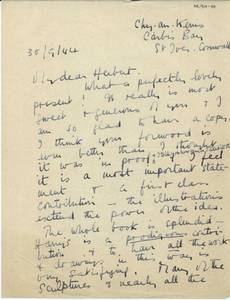 Chy-an-Kerris
Carbis Bay
St Ives. Cornwall
30/9/44
My dear Herbert.
What a perfectly lovely
present! It really is most
sweet & generous of you & I
am so glad to have a copy.
I think your foreword is
even better than I thought
it was in proof I feel
it is a most important state-
ment & a first class
contribution - the illustrations
extend the power of the idea.
The whole book is splendid -
is a prodigious contri-
bution & to have all the work
& drawings in this way is
very satisfying. Many of the
sculptures & nearly all the